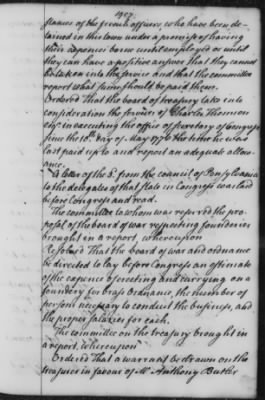 1777
stances of the french officers, who have been de-
tained in this town under a promise of having
their expences borne until employed or until
they can have a positive answer that they cannot
be taken into the service and that the committee
report what sum should be paid them.
Ordered That the board of treasury take into
consideration the services of Charles Thomson
esqr. in executing the office of secretary of Congress
since the 10th. day of May 1776 the time he was
last paid up to and report an adequate allow-
ance.
A letter of the 3d. from the council of Pensylvania
to the delegates of that state in Congress was laid
before Congress and read.
The committee to whom was referred the pro-
posal of the board of war respecting founderies
brought in a report, whereupon
Resolved That the board of war and ordnance
be directed to lay before Congress an estimate
of the expence of erecting and carrying on a
foundery for brass ordnance, the number of
persons necessary to conduct the business, and
the proper salaries for each.
The committee on the treasury brought in
a report, whereupon
Ordered That a warrant be drawn on the
treasurer in favour of Mr. Anthony Butler